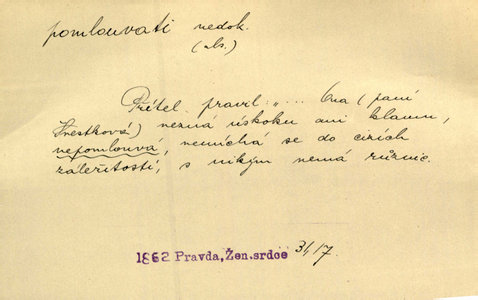 pomlouvati nedok.
(abs.)
Přítel pravil: „... Ona (paní
Švestková) nezná úskoku ani klamu,
nepomlouvá, nemíchá se do cizích
záležitostí, s nikým nemá různic.
1862 Pravda, Žen.srdce 31/17.